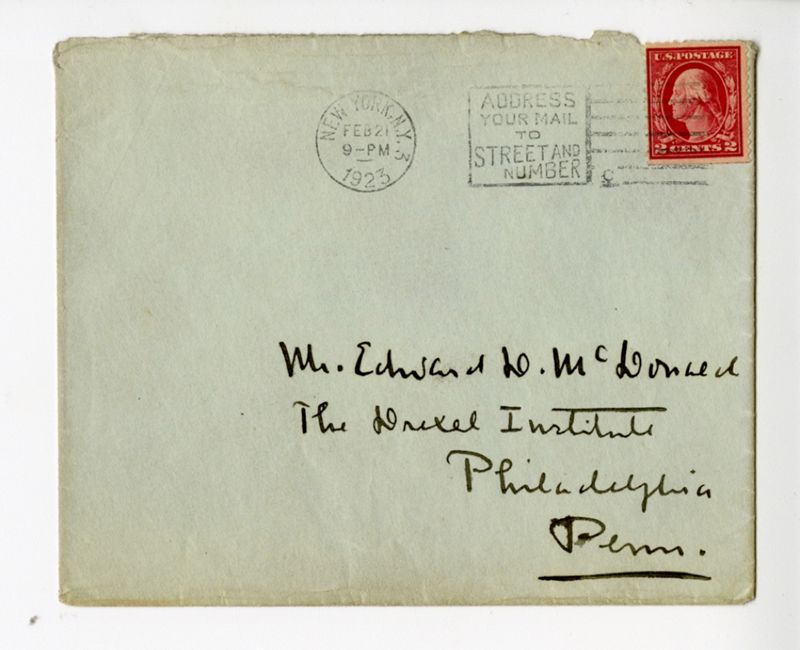 NEW YORK, N.Y. 3
FEB 21
9-PM
1923
ADDRESS
YOUR MAIL
TO
STREET AND
NUMBER
C
U.S. POSTAGE
2 CENTS 2
Mr. Edward D. McDonald
The Drexel Institute
Philadelphia
Penn.